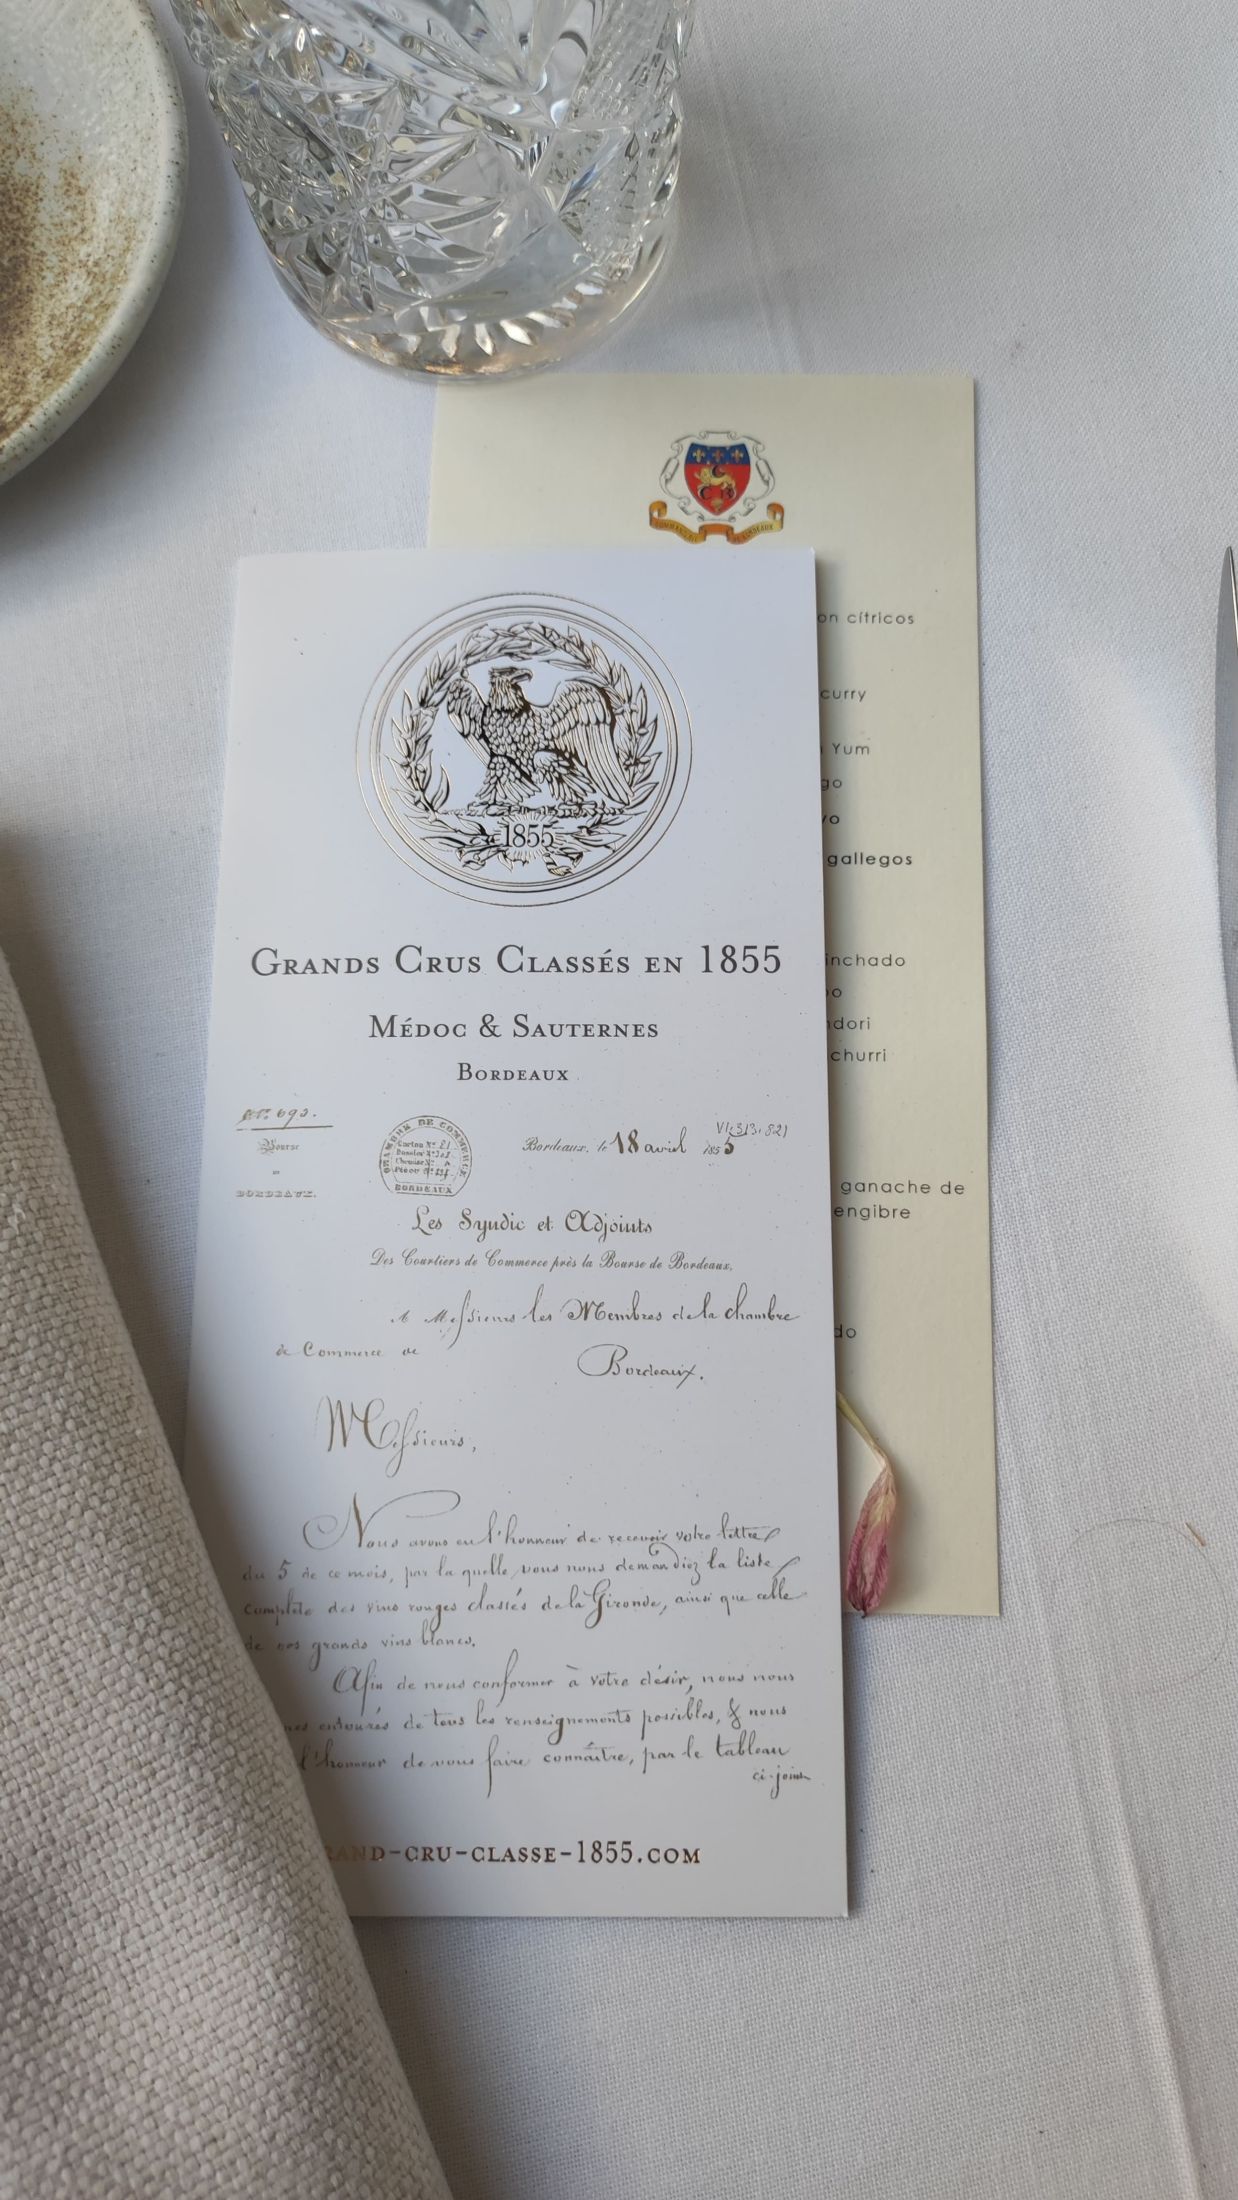 COMMANDERIE DE BORDEAUX
on cítricos
curry
Yum
go
vo
gallegos
inchado
do
ndori
churri
ganache de
engibre
do
1855
GRANDS CRUS CLASSÉS EN 1855
MÉDOC & SAUTERNES
BORDEAUX
N.º 693.
Bourse
DE
BORDEAUX.
CHAMBRE DE COMMERCE
Carton Nº 21
BORDEAUX
Bordeaux, le 18 avril 1855
Les Syndic et Adjoints
Des Courtiers de Commerce près la Bourse de Bordeaux,
A Messieurs les Membres de la chambre
de Commerce de
Bordeaux.
Messieurs,
Nous avons eu l'honneur de recevoir votre lettre
du 5 de ce mois, par la quelle vous nous demandiez la liste
complète des vins rouges classés de la Gironde, ainsi que celle
de nos grands vins blancs.
Afin de nous conformer à votre désir, nous nous
mes entourés de tous les renseignements possibles, & nous
l'honneur de vous faire connaître, par le tableau
ci-joint
RAND-CRU-CLASSE-1855.COM